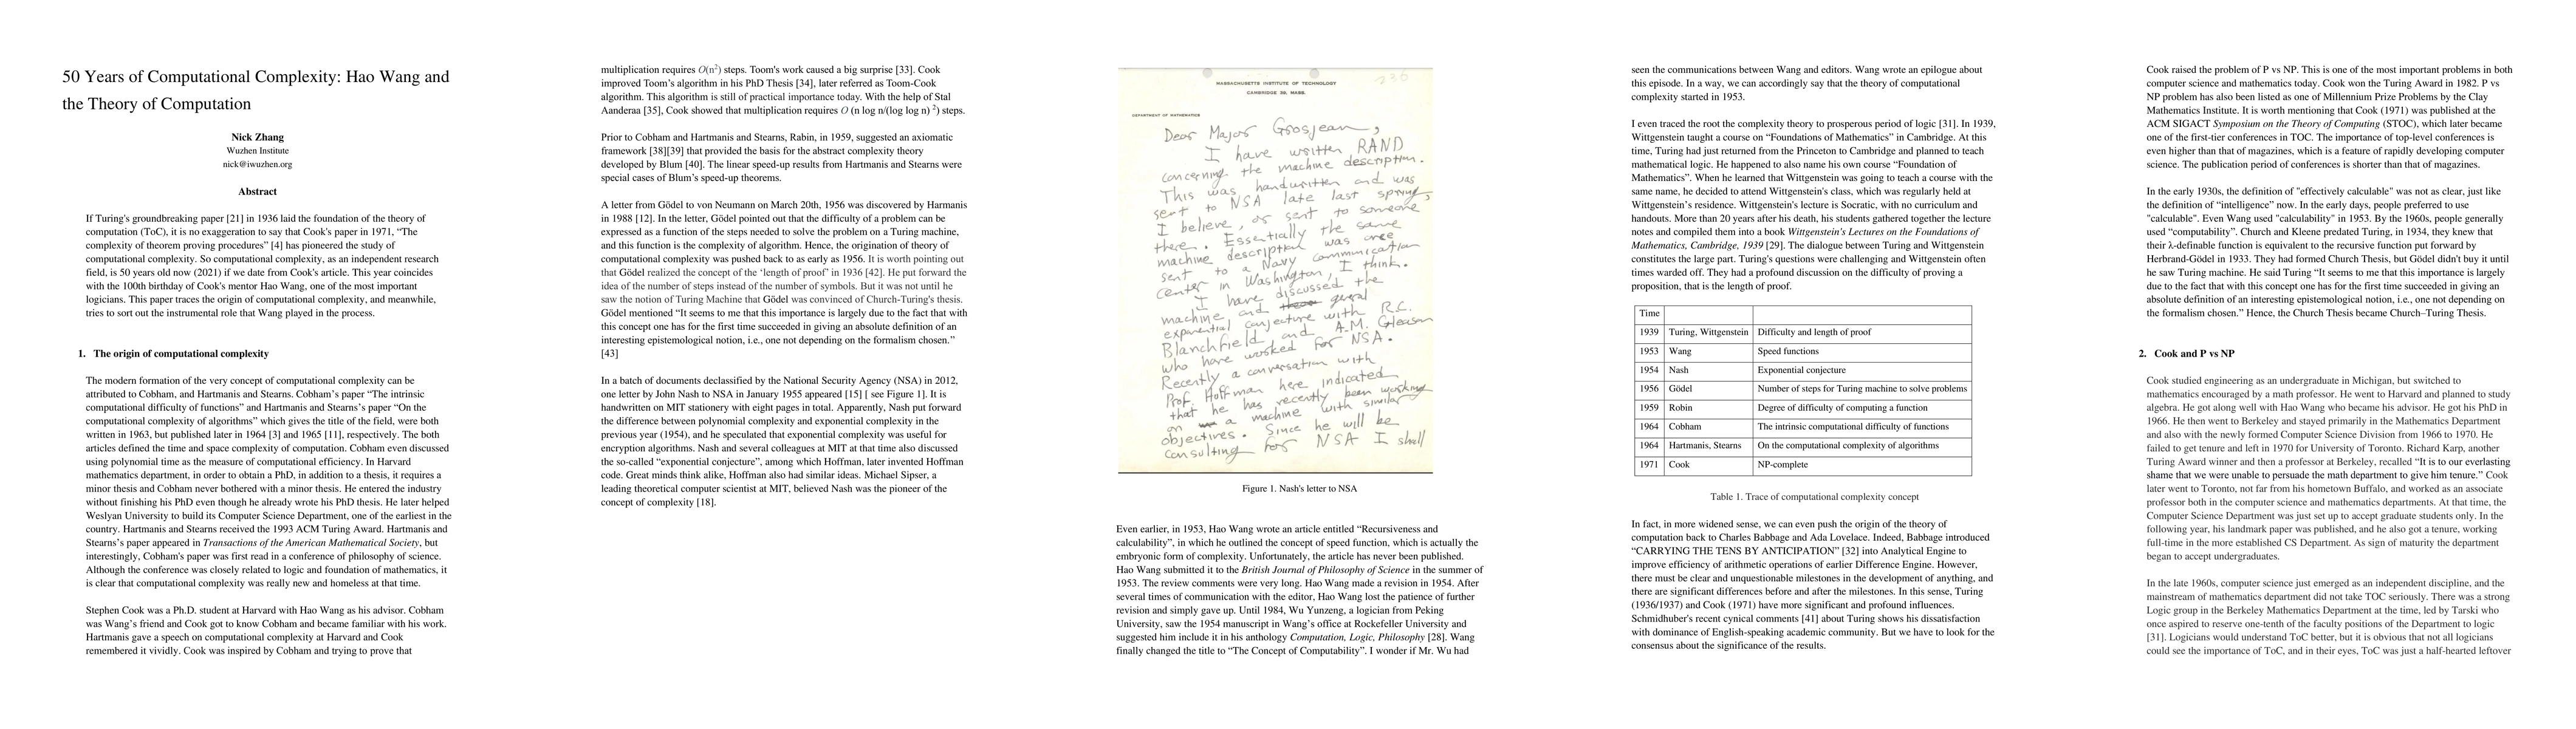 50 Years of Computational Complexity: Hao Wang and
the Theory of Computation
Nick Zhang
Wuzhen Institute
nick@iwuzhen.org
Abstract
If Turing's groundbreaking paper [21] in 1936 laid the foundation of the theory of
computation (ToC), it is no exaggeration to say that Cook's paper in 1971, “The
complexity of theorem proving procedures” [4] has pioneered the study of
computational complexity. So computational complexity, as an independent research
field, is 50 years old now (2021) if we date from Cook's article. This year coincides
with the 100th birthday of Cook's mentor Hao Wang, one of the most important
logicians. This paper traces the origin of computational complexity, and meanwhile,
tries to sort out the instrumental role that Wang played in the process.
1. The origin of computational complexity
The modern formation of the very concept of computational complexity can be
attributed to Cobham, and Hartmanis and Stearns. Cobham's paper “The intrinsic
computational difficulty of functions” and Hartmanis and Stearns's paper “On the
computational complexity of algorithms” which gives the title of the field, were both
written in 1963, but published later in 1964 [3] and 1965 [11], respectively. The both
articles defined the time and space complexity of computation. Cobham even discussed
using polynomial time as the measure of computational efficiency. In Harvard
mathematics department, in order to obtain a PhD, in addition to a thesis, it requires a
minor thesis and Cobham never bothered with a minor thesis. He entered the industry
without finishing his PhD even though he already wrote his PhD thesis. He later helped
Weslyan University to build its Computer Science Department, one of the earliest in the
country. Hartmanis and Stearns received the 1993 ACM Turing Award. Hartmanis and
Stearns's paper appeared in Transactions of the American Mathematical Society, but
interestingly, Cobham's paper was first read in a conference of philosophy of science.
Although the conference was closely related to logic and foundation of mathematics, it
is clear that computational complexity was really new and homeless at that time.
Stephen Cook was a Ph.D. student at Harvard with Hao Wang as his advisor. Cobham
was Wang's friend and Cook got to know Cobham and became familiar with his work.
Hartmanis gave a speech on computational complexity at Harvard and Cook
remembered it vividly. Cook was inspired by Cobham and trying to prove that
multiplication requires O(n²) steps. Toom's work caused a big surprise [33]. Cook
improved Toom's algorithm in his PhD Thesis [34], later referred as Toom-Cook
algorithm. This algorithm is still of practical importance today. With the help of Stal
Aanderaa [35], Cook showed that multiplication requires O (n log n/(log log n) ²) steps.
Prior to Cobham and Hartmanis and Stearns, Rabin, in 1959, suggested an axiomatic
framework [38][39] that provided the basis for the abstract complexity theory
developed by Blum [40]. The linear speed-up results from Hartmanis and Stearns were
special cases of Blum's speed-up theorems.
A letter from Gödel to von Neumann on March 20th, 1956 was discovered by Harmanis
in 1988 [12]. In the letter, Gödel pointed out that the difficulty of a problem can be
expressed as a function of the steps needed to solve the problem on a Turing machine,
and this function is the complexity of algorithm. Hence, the origination of theory of
computational complexity was pushed back to as early as 1956. It is worth pointing out
that Gödel realized the concept of the ‘length of proof’ in 1936 [42]. He put forward the
idea of the number of steps instead of the number of symbols. But it was not until he
saw the notion of Turing Machine that Gödel was convinced of Church-Turing's thesis.
Gödel mentioned “It seems to me that this importance is largely due to the fact that with
this concept one has for the first time succeeded in giving an absolute definition of an
interesting epistemological notion, i.e., one not depending on the formalism chosen.”
[43]
In a batch of documents declassified by the National Security Agency (NSA) in 2012,
one letter by John Nash to NSA in January 1955 appeared [15] [ see Figure 1]. It is
handwritten on MIT stationery with eight pages in total. Apparently, Nash put forward
the difference between polynomial complexity and exponential complexity in the
previous year (1954), and he speculated that exponential complexity was useful for
encryption algorithms. Nash and several colleagues at MIT at that time also discussed
the so-called “exponential conjecture”, among which Hoffman, later invented Hoffman
code. Great minds think alike, Hoffman also had similar ideas. Michael Sipser, a
leading theoretical computer scientist at MIT, believed Nash was the pioneer of the
concept of complexity [18].
236
MASSACHUSETTS INSTITUTE OF TECHNOLOGY
CAMBRIDGE 39, MASS.
DEPARTMENT OF MATHEMATICS
Dear Major Grosjean,
I have written RAND
concerning the machine description.
This was handwritten and was
sent to NSA late last spring,
I believe, or sent to someone
there. Essentially the same
machine description was once
sent to a Navy communication
center in Washington, I think.
I have discussed the
machine and general
exponential conjecture with R.C.
Blanchfield and A.M. Gleason
who have worked for NSA.
Recently a conversation with
Prof. Huffman here indicated
that he has recently been working
on a machine with similar
objectives. Since he will be
consulting for NSA I shall
Figure 1. Nash's letter to NSA
Even earlier, in 1953, Hao Wang wrote an article entitled “Recursiveness and
calculability”, in which he outlined the concept of speed function, which is actually the
embryonic form of complexity. Unfortunately, the article has never been published.
Hao Wang submitted it to the British Journal of Philosophy of Science in the summer of
1953. The review comments were very long. Hao Wang made a revision in 1954. After
several times of communication with the editor, Hao Wang lost the patience of further
revision and simply gave up. Until 1984, Wu Yunzeng, a logician from Peking
University, saw the 1954 manuscript in Wang's office at Rockefeller University and
suggested him include it in his anthology Computation, Logic, Philosophy [28]. Wang
finally changed the title to “The Concept of Computability”. I wonder if Mr. Wu had
seen the communications between Wang and editors. Wang wrote an epilogue about
this episode. In a way, we can accordingly say that the theory of computational
complexity started in 1953.
I even traced the root the complexity theory to prosperous period of logic [31]. In 1939,
Wittgenstein taught a course on “Foundations of Mathematics” in Cambridge. At this
time, Turing had just returned from the Princeton to Cambridge and planned to teach
mathematical logic. He happened to also name his own course “Foundation of
Mathematics”. When he learned that Wittgenstein was going to teach a course with the
same name, he decided to attend Wittgenstein's class, which was regularly held at
Wittgenstein's residence. Wittgenstein's lecture is Socratic, with no curriculum and
handouts. More than 20 years after his death, his students gathered together the lecture
notes and compiled them into a book Wittgenstein's Lectures on the Foundations of
Mathematics, Cambridge, 1939 [29]. The dialogue between Turing and Wittgenstein
constitutes the large part. Turing's questions were challenging and Wittgenstein often
times warded off. They had a profound discussion on the difficulty of proving a
proposition, that is the length of proof.
Time
1939 Turing, Wittgenstein Difficulty and length of proof
1953 Wang Speed functions
1954 Nash Exponential conjecture
1956 Gödel Number of steps for Turing machine to solve problems
1959 Robin Degree of difficulty of computing a function
1964 Cobham The intrinsic computational difficulty of functions
1964 Hartmanis, Stearns On the computational complexity of algorithms
1971 Cook NP-complete
Table 1. Trace of computational complexity concept
In fact, in more widened sense, we can even push the origin of the theory of
computation back to Charles Babbage and Ada Lovelace. Indeed, Babbage introduced
“CARRYING THE TENS BY ANTICIPATION” [32] into Analytical Engine to
improve efficiency of arithmetic operations of earlier Difference Engine. However,
there must be clear and unquestionable milestones in the development of anything, and
there are significant differences before and after the milestones. In this sense, Turing
(1936/1937) and Cook (1971) have more significant and profound influences.
Schmidhuber's recent cynical comments [41] about Turing shows his dissatisfaction
with dominance of English-speaking academic community. But we have to look for the
consensus about the significance of the results.
Cook raised the problem of P vs NP. This is one of the most important problems in both
computer science and mathematics today. Cook won the Turing Award in 1982. P vs
NP problem has also been listed as one of Millennium Prize Problems by the Clay
Mathematics Institute. It is worth mentioning that Cook (1971) was published at the
ACM SIGACT Symposium on the Theory of Computing (STOC), which later became
one of the first-tier conferences in TOC. The importance of top-level conferences is
even higher than that of magazines, which is a feature of rapidly developing computer
science. The publication period of conferences is shorter than that of magazines.
In the early 1930s, the definition of "effectively calculable" was not as clear, just like
the definition of “intelligence” now. In the early days, people preferred to use
"calculable". Even Wang used "calculability" in 1953. By the 1960s, people generally
used “computability”. Church and Kleene predated Turing, in 1934, they knew that
their λ-definable function is equivalent to the recursive function put forward by
Herbrand-Gödel in 1933. They had formed Church Thesis, but Gödel didn't buy it until
he saw Turing machine. He said Turing “It seems to me that this importance is largely
due to the fact that with this concept one has for the first time succeeded in giving an
absolute definition of an interesting epistemological notion, i.e., one not depending on
the formalism chosen.” Hence, the Church Thesis became Church–Turing Thesis.
2. Cook and P vs NP
Cook studied engineering as an undergraduate in Michigan, but switched to
mathematics encouraged by a math professor. He went to Harvard and planned to study
algebra. He got along well with Hao Wang who became his advisor. He got his PhD in
1966. He then went to Berkeley and stayed primarily in the Mathematics Department
and also with the newly formed Computer Science Division from 1966 to 1970. He
failed to get tenure and left in 1970 for University of Toronto. Richard Karp, another
Turing Award winner and then a professor at Berkeley, recalled “It is to our everlasting
shame that we were unable to persuade the math department to give him tenure.” Cook
later went to Toronto, not far from his hometown Buffalo, and worked as an associate
professor both in the computer science and mathematics departments. At that time, the
Computer Science Department was just set up to accept graduate students only. In the
following year, his landmark paper was published, and he also got a tenure, working
full-time in the more established CS Department. As sign of maturity the department
began to accept undergraduates.
In the late 1960s, computer science just emerged as an independent discipline, and the
mainstream of mathematics department did not take TOC seriously. There was a strong
Logic group in the Berkeley Mathematics Department at the time, led by Tarski who
once aspired to reserve one-tenth of the faculty positions of the Department to logic
[31]. Logicians would understand ToC better, but it is obvious that not all logicians
could see the importance of ToC, and in their eyes, ToC was just a half-hearted leftover